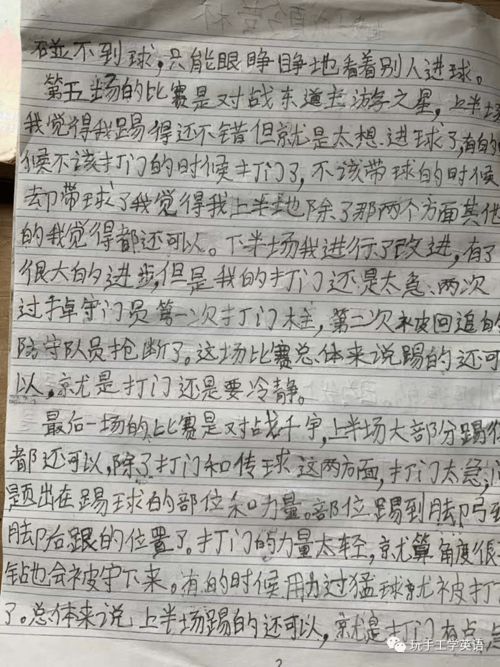 碰不到球，只能眼睁睁地看着别人进球。
第五场的比赛是对战东道主游学之星，上半场
我觉得我踢得还不错但就是太想进球了，有的
候不该打门的时候打门了，不该带球的时候
却带球了我觉得我上半地除了那两个方面其他
的我觉得都还可以。下半场我进行了改进，有了
很大的进步，但是我的打门还是太急、两次
过掉守门员第一次打门柱，第二次被回追的
防守队员抢断了。这场比赛总体来说踢的还可
以，就是打门还是要冷静。
最后一场的比赛是对战千宇，上半场大部分踢
都还可以，除了打门和传球这两方面，打门太急，
题出在踢球的部位和力量。部位踢到脚弓
脚后跟的位置了。打门的力量太轻，就算角度很
钻也会被守下来。有的时候用力过猛球就被打
了。总体来说上半场踢的还可以，就是打门有点
玩手工学英语